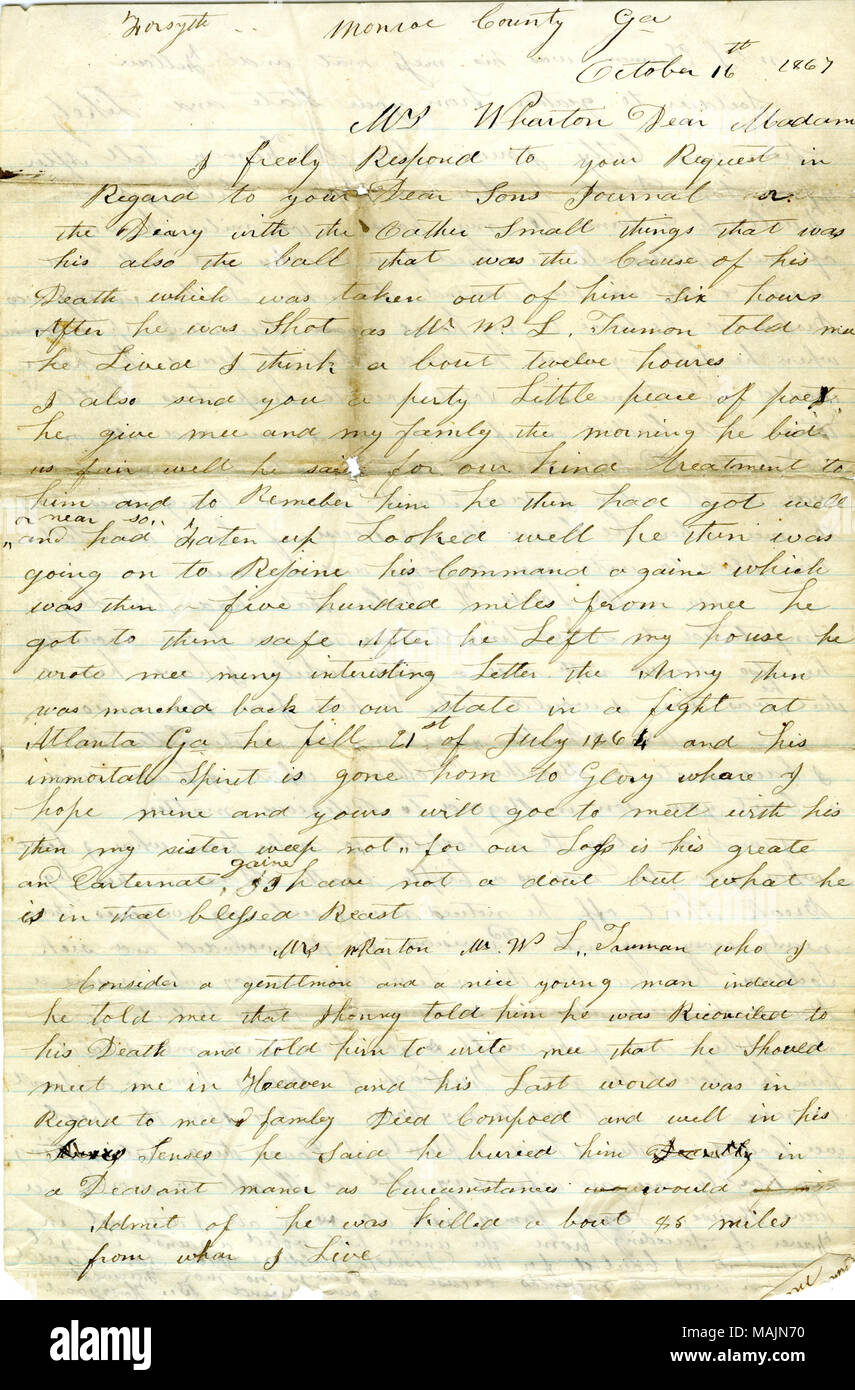 Forsyth .. Monroe County Ga
October 16th 1867
Mrs Wharton Dear Madam
I freely Respond to your Request in
Regard to your Dear Sons Journal or
the Deary with the Oather Small things that was
his also the ball that was the Cause of his
Death which was taken out of him six hours
After he was Shot as Mr Wm L. Trumon told mee
he Lived I think a bout twelve houres
I also send you a perty Little peace of poet
he give mee and my famly the morning he bid
us fair well he said for our kind treatment to
him and to Remeber him he then had got well
or near so"
"and had Faten up Looked well he then was
going on to Rejoine his Command a gaine which
was then a five hundred miles from mee he
got to them safe After he Left my house he
wrote mee meny interesting Letter the Army then
was marched back to our state in a fight at
Atlanta Ga he fell 21st of July 1864 and his
immortal Spirit is gone hom to Glory whare I
hope mine and yours will goe to meet with his
then my sister weep not " for our Loss is his greate
gaine
an Earternal I have not a dout but what he
is in that blessed Reast
Mrs Wharton Mr. Wm L., Truman who I
Consider a genttmon and a nice young man indeed
he told mee that Jhonny told him he was Riconciled to
his Death and told him to write mee that he Should
meet me in Heaven and his Last words was in
Regard to mee & famley Died Compoed and well in his
Senses he said he buried him in
a Deasant maner as Curcumstances would
Admit of he was killed a bout 85 miles
from whar I Live
alamy
Image ID: MAJN70
www.alamy.com